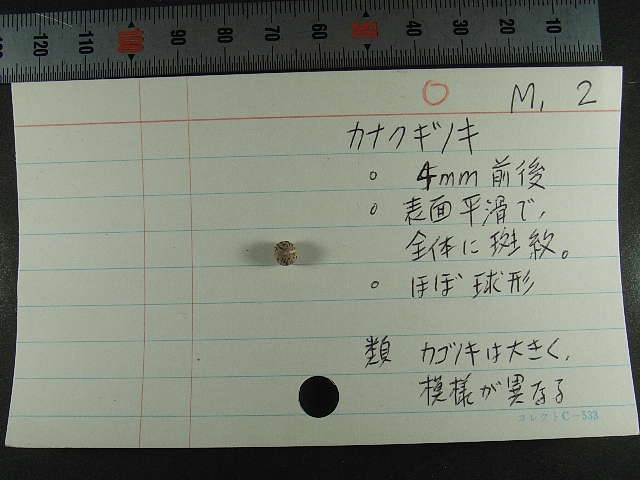 120 110 100 90 80 70 60 50 40 30 20 10
O M, 2
カナクギノキ
。 4mm 前後
。 表面平滑で、
全体に斑紋。
。 ほぼ球形
類 カゴノキは大きく、
模様が異なる
コレクト C-533